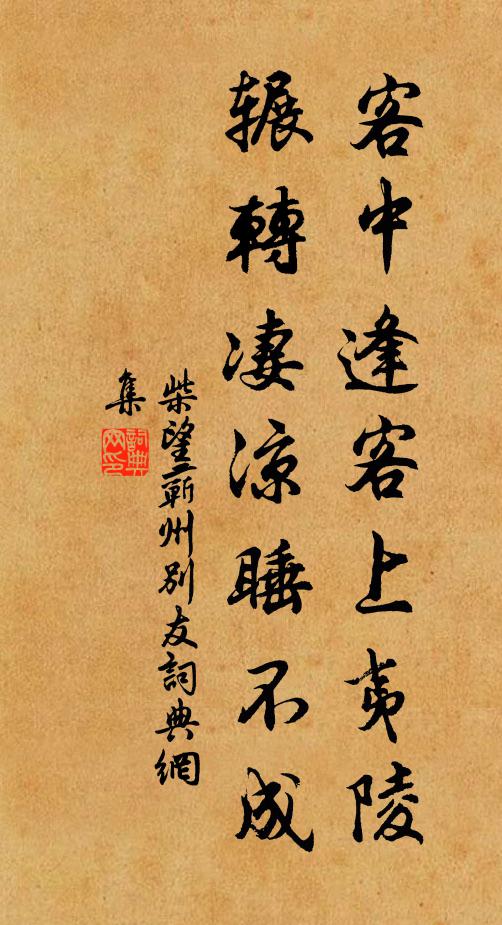 客中逢客上夷陵
辗轉凄凉睡不成
柴望蘄州别友詞典網
集
詞典網印